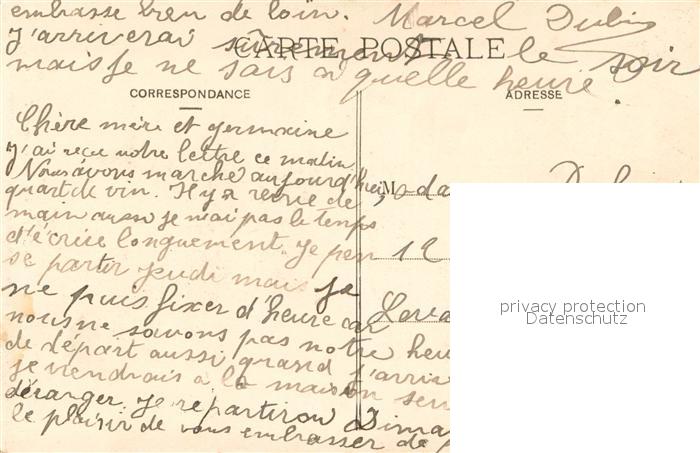 embrasse bien de loin. Marcel Dubin
J'arriverai sûrement le soir
mais je ne sais à quelle heure.
CARTE POSTALE
CORRESPONDANCE
ADRESSE
Chère mère et germaine
j'ai reçu votre lettre ce matin
Nous avons marché aujourd'hui,
quart de vin. Il y a revue de
main aussi je n'ai pas le temps
d'écrire longuement. Je pen
se partir jeudi mais je
ne puis fixer d'heure car
nous ne savons pas notre heu
de départ aussi quand j'arriv
je viendrais a la maison sen
déranger. Je repartirou Dima
le plaisir de vous embrasser de
Mada
12
Leva
privacy protection
Datenschutz